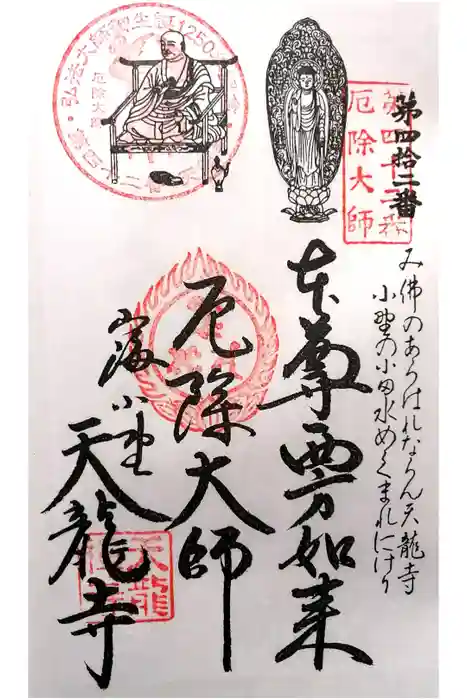 第四拾二番
厄除大師
み佛のあらはれならん天龍寺
小野の小田水めぐまれにけり
本尊西方如来
厄除大師
小野
天龍寺
弘法大師御生誕1250年
厄除大師